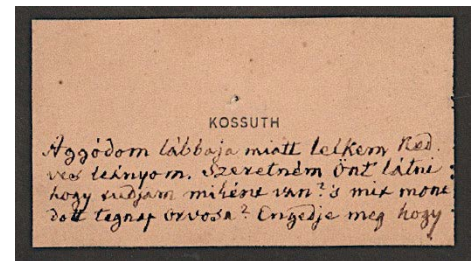 KOSSUTH
Aggódom lábbaja miatt lelkem Ked.
ves leányom. Szeretném Önt látni
hogy tudjam miként van? 's mit mon
dott tegnap orvosa? Engedje meg hogy